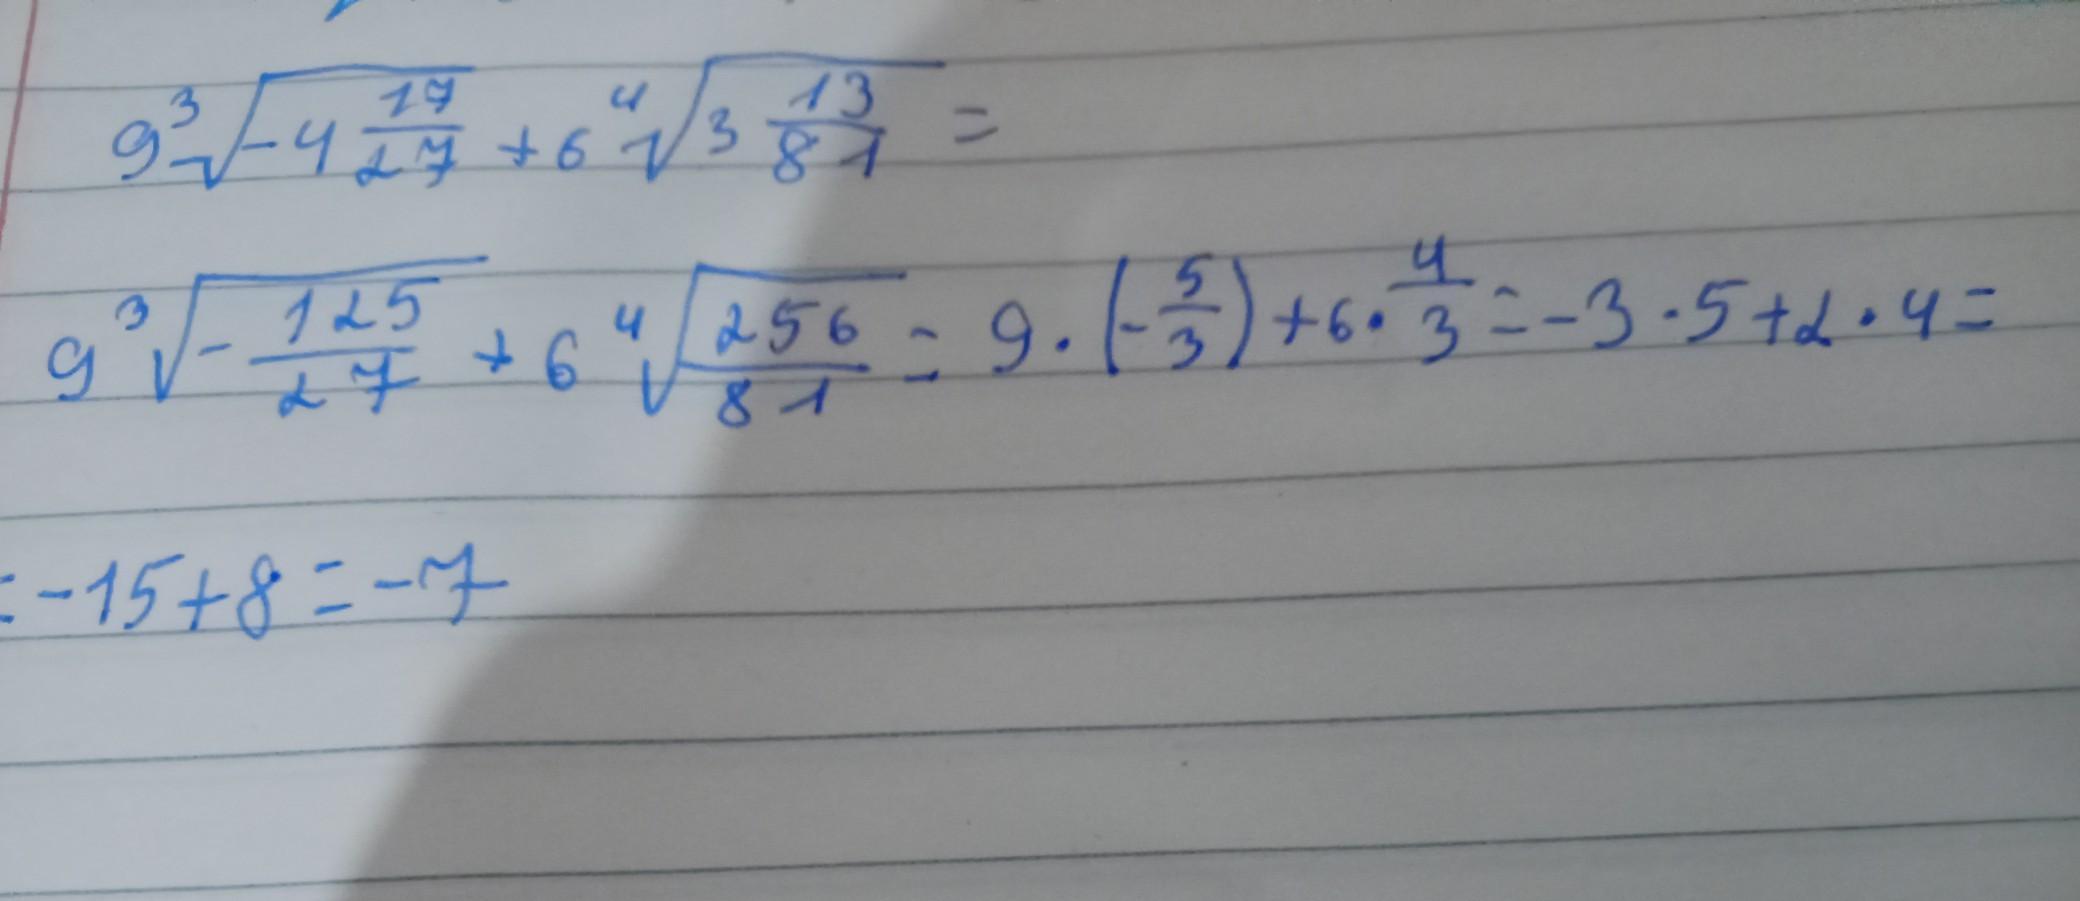 9∛(-4 17/27) + 6∜(3 13/81) =
9∛(-125/27) + 6∜(256/81) = 9·(-5/3) + 6·4/3 = -3·5+2·4=
= -15+8 = -7